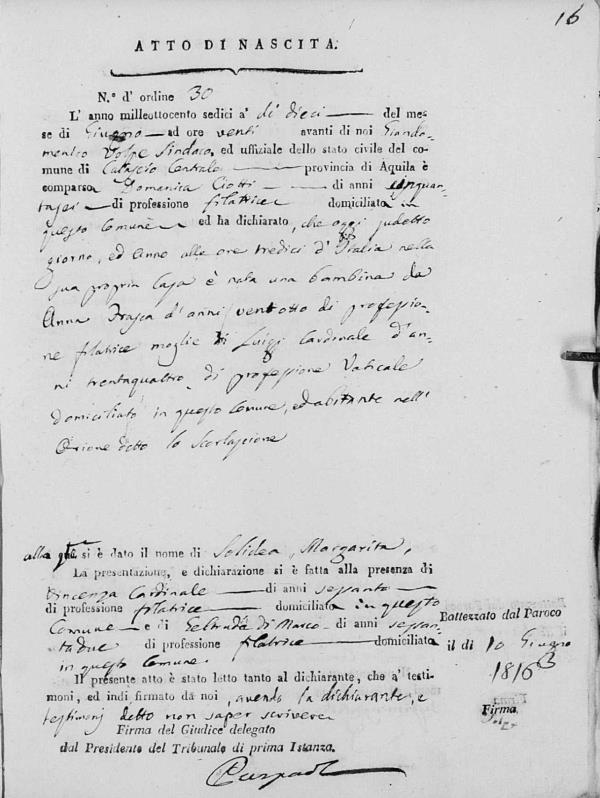 16
ATTO DI NASCITA.
N.° d' ordine 30
L' anno milleottocento sedici a' di dieci del me-
se di Giugno ad ore venti avanti di noi Giando-
menico Volpe Sindaco, ed uffiziale dello stato civile del co-
mune di Calascio Centrale provincia di Aquila è
comparsa Domenica Ciotti di anni cinquan-
tasei di professione filatrice domiciliata in
questo Comune ed ha dichiarato, che oggi sudetto
giorno, ed anno alle ore tredici d' Italia nella
sua propria casa è nata una bambina da
Anna Frasca d' anni ventotto di professio-
ne filatrice moglie di Luigi Cardinale d' an-
ni trentaquattro di professione Vaticale
domiciliato in questo Comune, ed abitante nell'
Rione detto lo
alla quale si è dato il nome di Solidea, Margarita,
La presentazione, e dichiarazione si è fatta alla presenza di
Vincenza Cardinale di anni sessanta
di professione filatrice domiciliata in questo
Comune e di Geltruda di Marco di anni sessan-
tadue di professione filatrice domiciliata
in questo Comune.
Il presente atto è stato letto tanto al dichiarante, che a' testi-
moni, ed indi firmato da noi, avendo la dichiarante, e
testimonj detto non saper scrivere
Firma del Giudice delegato
dal Presidente del Tribunale di prima Istanza.
Battezzato dal Paroco
il di 10 Giugno
1816
Firma.